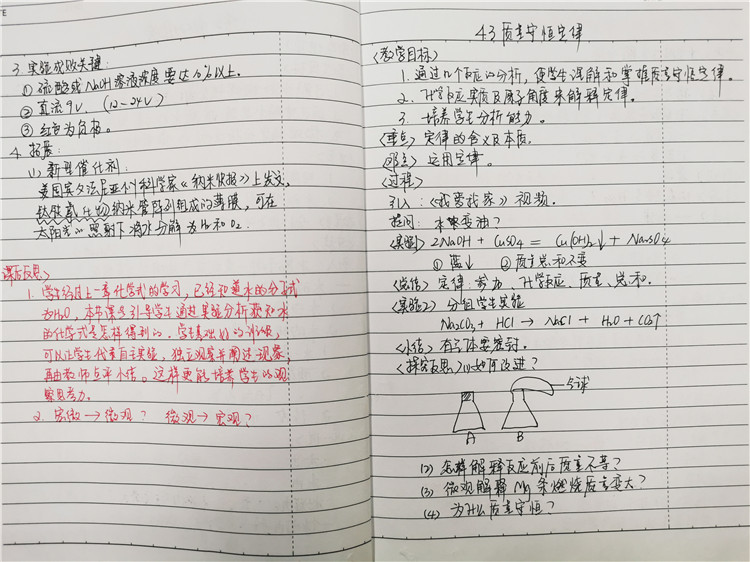 3. 实验成败关键:
① 硫酸或NaOH溶液浓度要达10%以上.
② 直流9V. (12—24V)
③ 红色为负极.
4. 拓展:
(1) 新型催化剂:
美国宾夕法尼亚个州科学家《纳米快报》上发文,
钛 纳米管阵列组成的薄膜, 可在
太阳光的照射下将水分解为H₂和O₂.
课后反思
1. 学生经过上一章化学式的学习, 已经知道水的分子式
为H₂O, 本节课为引导学生通过实验分析获知水
的化学式是怎样得到的. 学生基础好的班级,
可以让学生代表自主实验, 独立观察并阐述现象,
再由教师点评小结。这样更能培养学生的观
察思考力。
2. 宏微→微观? 微观→宏观?
4.3 质量守恒定律
<教学目标>
1. 通过几个反应的分析, 使学生理解和掌握质量守恒定律.
2. 化学反应实质及原子角度来解释定律.
3. 培养学生分析能力.
<重点> 定律的含义及本质.
<难点> 运用定律.
<过程>
引入:《我爱我家》视频.
提问: 本变油?
<实验1> 2NaOH + CuSO₄ = Cu(OH)₂↓ + Na₂SO₄
① 蓝↓ ② 质量总和不变
<总结> 定律: 参加、化学反应、质量、总和.
<实验2> 分组学生实验
Na₂CO₃ + HCl → NaCl + H₂O + CO₂↑
<小结> 有气体要密封.
<探究反思> (1) 如何改进?
气球
A B
(2) 怎样解释反应前后质量不等?
(3) 微观解释Mg条燃烧质量变大?
(4) 为什么质量守恒?